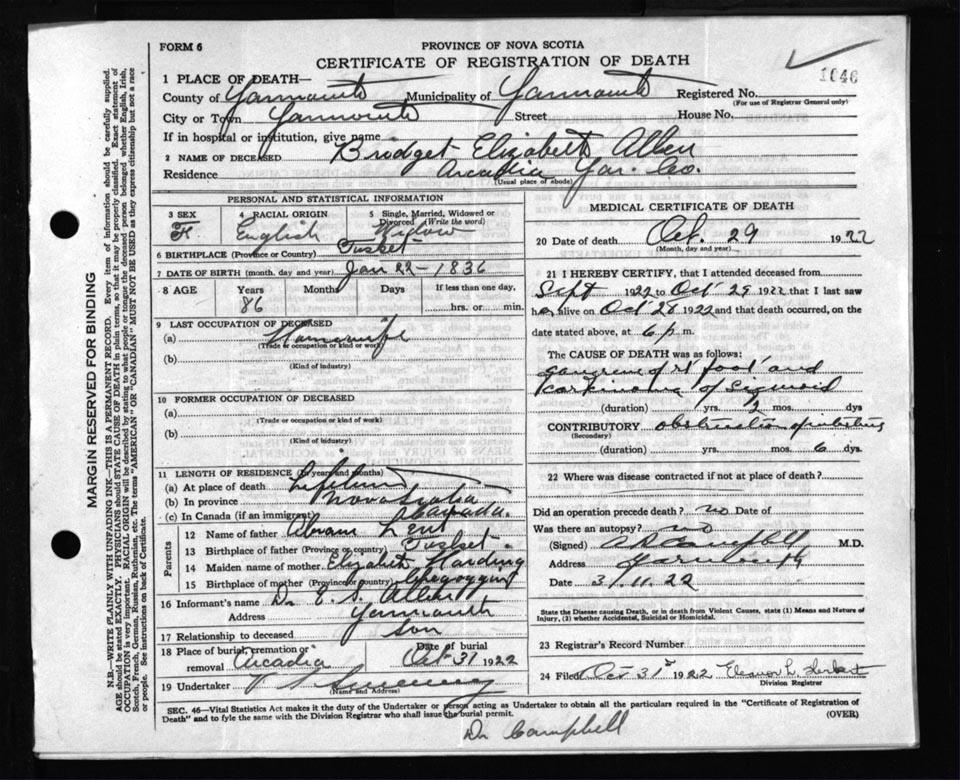 FORM 6
PROVINCE OF NOVA SCOTIA
CERTIFICATE OF REGISTRATION OF DEATH
1646
1 PLACE OF DEATH—
County of Yarmouth Municipality of Yarmouth Registered No.
(For use of Registrar General only)
City or Town Yarmouth Street House No.
If in hospital or institution, give name
2 NAME OF DECEASED Bridget Elizabeth Allen
Residence Arcadia Yar. Co.
(Usual place of abode)
PERSONAL AND STATISTICAL INFORMATION
3 SEX 4 RACIAL ORIGIN 5 Single, Married, Widowed or Divorced (Write the word)
F. English Widow
6 BIRTHPLACE (Province or Country) Tusket
7 DATE OF BIRTH (month, day and year) Jan 22-1836
8 AGE Years Months Days If less than one day,
86 hrs. or min.
9 LAST OCCUPATION OF DECEASED
(a) Housewife
(Trade or occupation or kind of work)
(b)
(Kind of industry)
10 FORMER OCCUPATION OF DECEASED
(a)
(Trade or occupation or kind of work)
(b)
(Kind of industry)
11 LENGTH OF RESIDENCE (In years and months)
(a) At place of death Lifetime
(b) In province Nova Scotia
(c) In Canada (if an immigrant) Canada.
Parents
12 Name of father Abram Lent
13 Birthplace of father (Province or country) Tusket
14 Maiden name of mother Elizabeth Harding
15 Birthplace of mother (Province or country)
16 Informant's name Dr E. S. Allen
Address Yarmouth
17 Relationship to deceased Son
18 Place of burial, cremation or removal Arcadia Date of burial Oct 31 1922
19 Undertaker V S Sweeney
(Name and Address)
MEDICAL CERTIFICATE OF DEATH
20 Date of death Oct. 29 1922
(Month, day and year)
21 I HEREBY CERTIFY, that I attended deceased from
Sept 1922 to Oct 29 1922 that I last saw
her alive on Oct 28 1922 and that death occurred, on
date stated above, at 6 p m.
The CAUSE OF DEATH was as follows:
gangrene of rt foot and
Carkinoma of Sigmoid
(duration) yrs. 2 mos. dys
CONTRIBUTORY obstruction of intestine
(Secondary)
(duration) yrs. mos. 6 ds.
22 Where was disease contracted if not at place of death?
Did an operation precede death? no Date of
Was there an autopsy? no
(Signed) Campbell M.D.
Address Yarmouth
Date 31 11 22
State the Disease causing Death, or in death from Violent Causes, state (1) Means and Nature of
Injury, (2) whether Accidental, Suicidal or Homicidal.
23 Registrar's Record Number
24 Filed Oct 31st 1922 Eleanor L. Herbert
Division Registrar
SEC. 46—Vital Statistics Act makes it the duty of the Undertaker or person acting as Undertaker to obtain all the particulars required in the "Certificate of Registration of
Death" and to fyle the same with the Division Registrar who shall issue the burial permit.
(OVER)
Dr Campbell
MARGIN RESERVED FOR BINDING
N.B.—WRITE PLAINLY WITH UNFADING INK—THIS IS A PERMANENT RECORD. Every item of information should be carefully supplied.
AGE should be stated EXACTLY. PHYSICIANS should STATE CAUSE OF DEATH in plain terms, so that it may be properly classified. Exact statement of
OCCUPATION is very important. RACIAL ORIGIN will be described by stating to what people or tongue the deceased person belonged whether English, Irish,
Scotch, French, German, Russian, Ruthenian, etc. The terms "AMERICAN" OR "CANADIAN" MUST NOT BE USED as they express citizenship but not a race
or people. See instructions on back of Certificate.